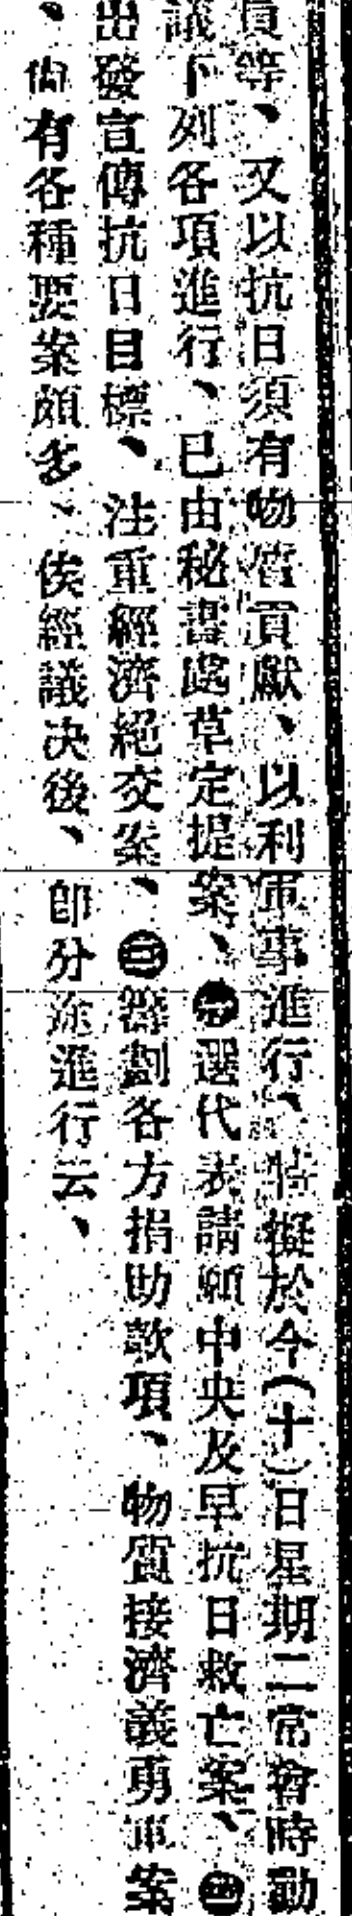 員等、又以抗日須有物質貢獻、以利軍事進行、特擬於今(十)日星期二常會時動
議下列各項進行、已由秘書處草定提案、㊀選代表請願中央及早抗日救亡案、㊁
出發宣傳抗日目標、注重經濟絕交案、㊂籌劃各方捐助款項、物質接濟義勇軍案
、尙有各種要案頗多、俟經議决後、卽分途進行云、